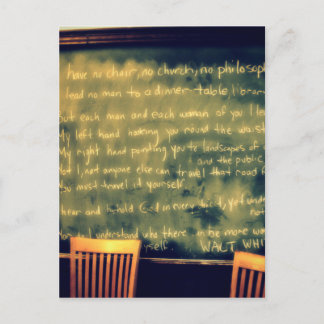 have no chair, no church, no philosoph
lead no man to a dinner-table, librar
but each man and each woman of you I lea
My left hand hooking you round the waist
My right hand pointing you to landscapes of
and the public
Not I, not anyone else can travel that road f
You must travel it yourself.
hear and behold God in every object, yet under
not
Nor do I understand who there can be more wo
myself. WALT WHI